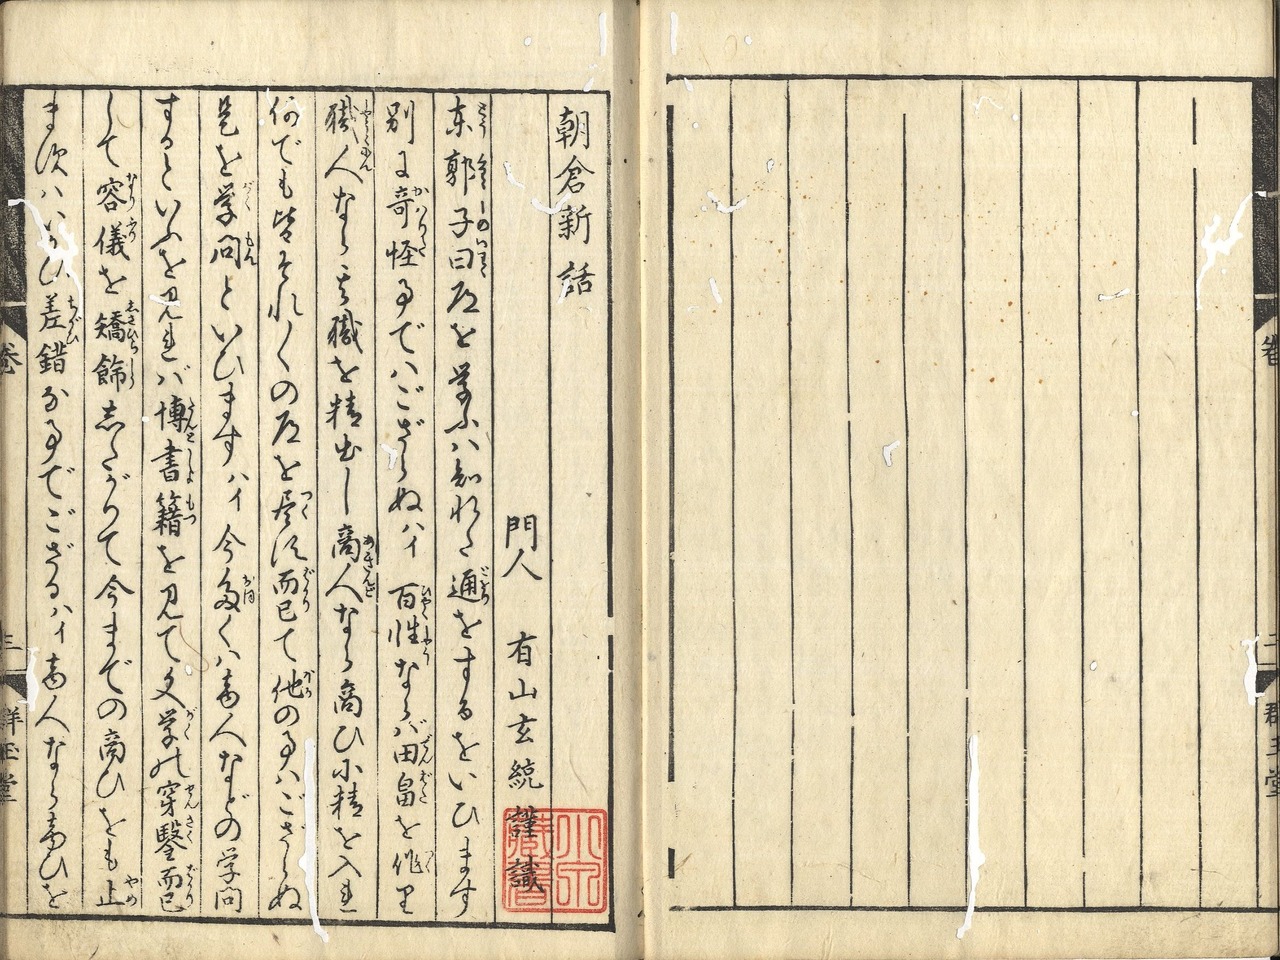 朝倉新話
門人　有山玄統謹識
東郭子曰道を学ふハ知れた通をするをいひます
別に奇怪事でハござらぬハイ百性ならバ田畠を作り
職人なら其職を精出し商人なら商ひに精を入れ
何でも皆それ〳〵の道を尽す而已て他の事ハござらぬ
是を学問といひますハイ今多くハ商人などの学問
するといふを見れバ博書籍を見て文学の穿鑿而已
して容儀を矯餝したがりて今までの商ひをも止
ま次ハ差錯な事でござるハイ商人なら商ひを
巻
三
群玉堂
巻
二
群玉堂